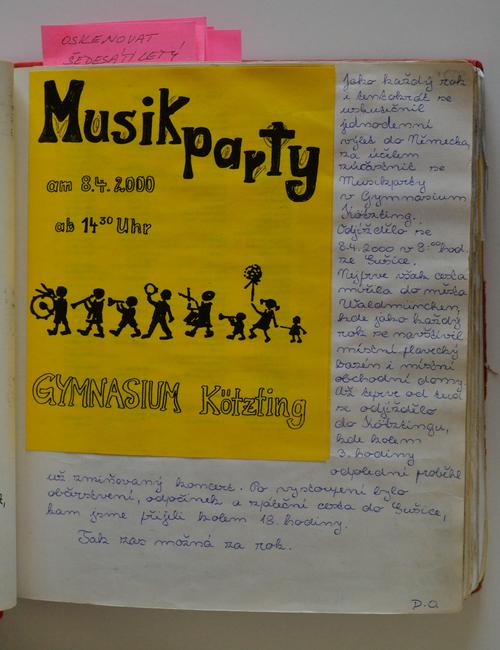 OSKENOVAT
ŠEDESÁTÍ LETÝ
Musikparty
am 8.4.2000
ab 14³⁰ Uhr
GYMNASIUM Kötzting
Jako každý rok
i tentokrát se
uskutečnil
jednodenní
výlet do Německa
za účelem
zúčastnit se
Musikparty
v Gymnasium
Kötzting.
Odjíždělo se
8.4.2000 v 8:00 hod.
ze Sušice.
Nejprve však cesta
mířila do města
Waldmünchen,
kde jako každý
rok se navštívil
místní plavecký
bazén i místní
obchodní domy.
Až teprve od tud
se odjíždělo
do Kötztingu,
kde kolem
3. hodiny
odpolední proběhl
už zmiňovaný koncert. Po vystoupení bylo
občerstvení, odpočinek a zpáteční cesta do Sušice,
kam jsme přijeli kolem 18. hodiny.
Tak zas možná za rok.
D.O